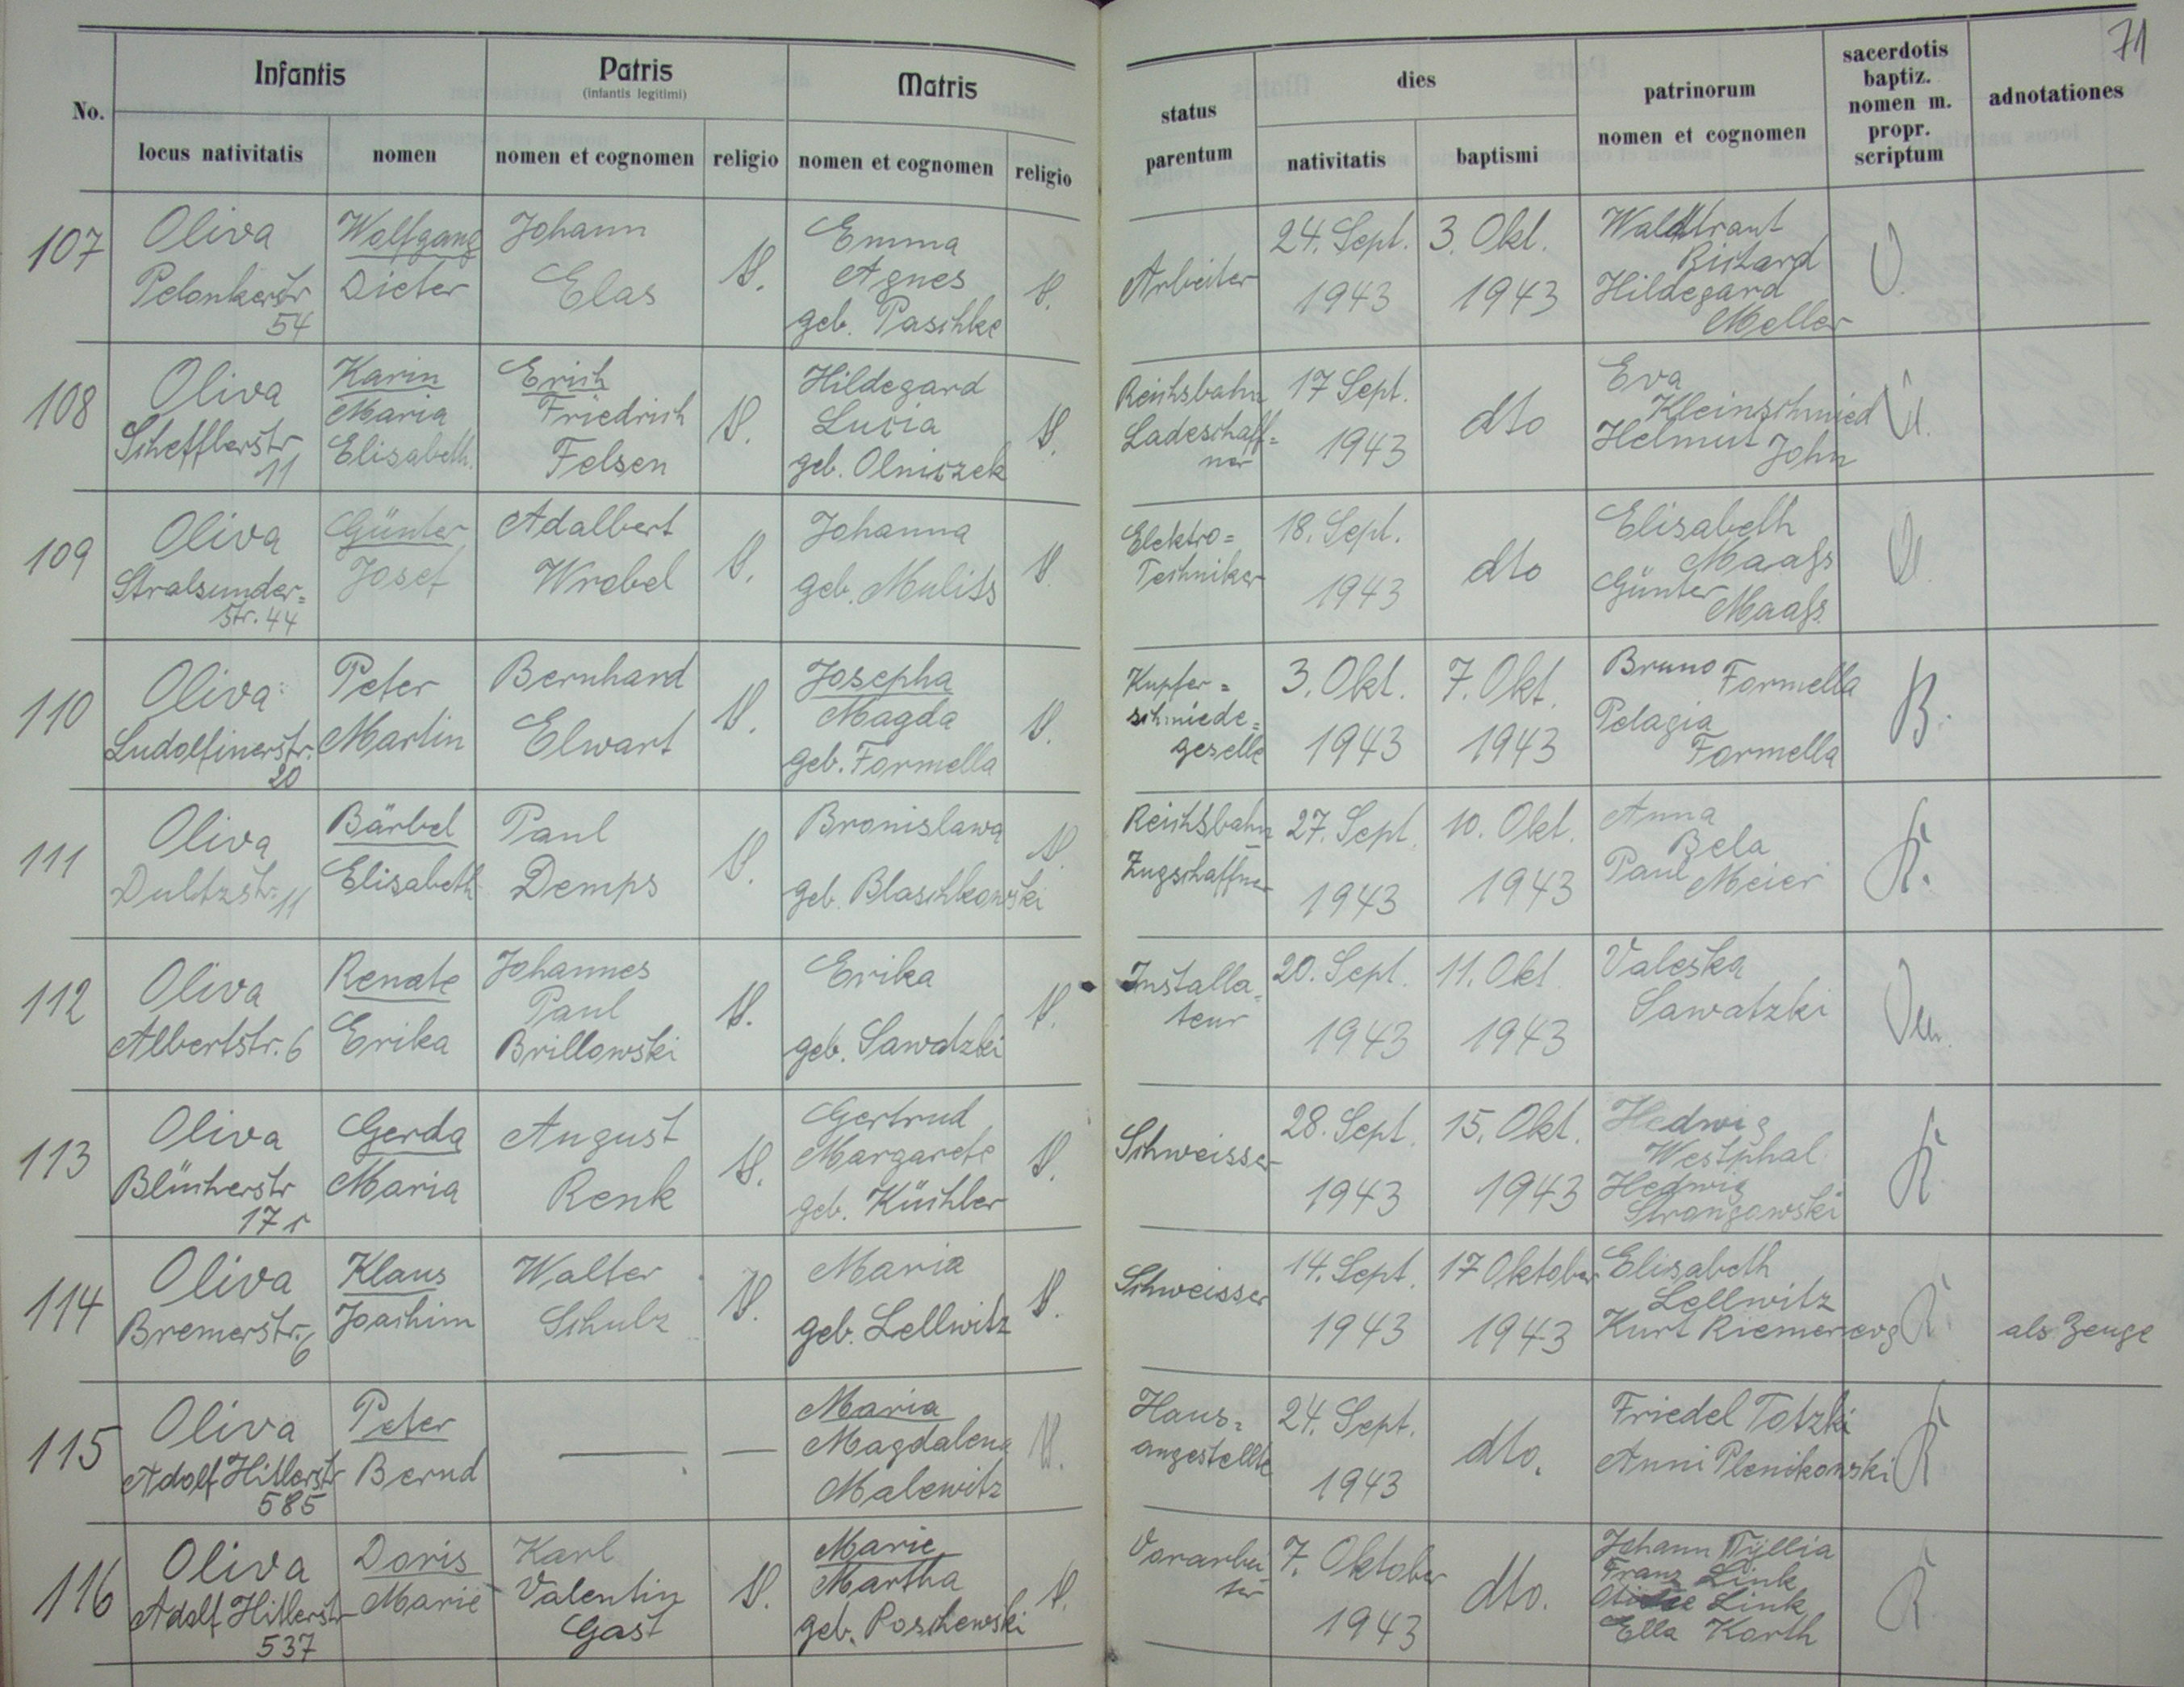 71
No.
Infantis
Patris
(infantis legitimi)
Matris
status parentum
dies
patrinorum
nomen et cognomen
sacerdotis
baptiz.
nomen m.
propr.
scriptum
adnotationes
locus nativitatis
nomen
nomen et cognomen
religio
nomen et cognomen
religio
nativitatis
baptismi
107
Oliva
Pelonkerstr
54
Wolfgang
Dieter
Johann
Elas
Emma
Agnes
geb. Paschke
Arbeiter
24. Sept.
1943
3. Okt.
1943
Waldtraut
Richard
Hildegard
Meller
108
Oliva
Schefflerstr
11
Karin
Maria
Elisabeth.
Erich
Friedrich
Felsen
Hildegard
Lucia
geb. Olniczek
Reichsbahn
Ladeschaff=
ner
17 Sept.
1943
dto
Eva
Kleinschmied
Helmut John
109
Oliva
Stralsunder=
str. 44
Günter
Josef
Adalbert
Wrobel
Johanna
geb. Muliss
Elektro=
Techniker
18. Sept.
1943
dto
Elisabeth
Maaß
Günter
Maaß
110
Oliva
Ludolfinerstr.
20
Peter
Martin
Bernhard
Elwart
Josepha
Magda
geb. Formella
Kupfer=
schmiede=
geselle
3. Okt.
1943
7. Okt.
1943
Bruno Formella
Pelagia
Formella
B.
111
Oliva
Dultzstr. 11
Bärbel
Elisabeth
Paul
Demps
Bronislawa
geb. Blaschkowski
Reichsbahn
Zugschaffner
27. Sept.
1943
10. Okt.
1943
Anna
Bela
Paul Meier
K.
112
Oliva
Albertstr. 6
Renate
Erika
Johannes
Paul
Brillowski
Erika
geb. Sawatzki
Installa=
teur
20. Sept.
1943
11. Okt
1943
Valeska
Sawatzki
113
Oliva
Blücherstr
17
Gerda
Maria
August
Renk
Gertrud
Margarete
geb. Küchler
Schweisser
28. Sept.
1943
15. Okt.
1943
Hedwig
Westphal
Hedwig
Strongowski
K
114
Oliva
Bremerstr. 6
Klaus
Joachim
Walter
Schulz
Maria
geb. Lellwitz
Schweisser
14. Sept.
1943
17 Oktober
1943
Elisabeth
Lellwitz
Kurt Riemer evg
K.
als Zeuge
115
Oliva
Adolf Hitlerstr
585
Peter
Bernd
Maria
Magdalena
Malewitz
Haus=
angestellte
24. Sept.
1943
dto.
Friedel Totzki
Anni Plenikowski
K
116
Oliva
Adolf Hitlerstr
537
Doris
Marie
Karl
Valentin
Gast
Marie
Martha
geb. Roschewski
Vorarbei
ter
7. Oktober
1943
dto.
Johann Tyllia
Franz Link
Link
Ella Korth
K